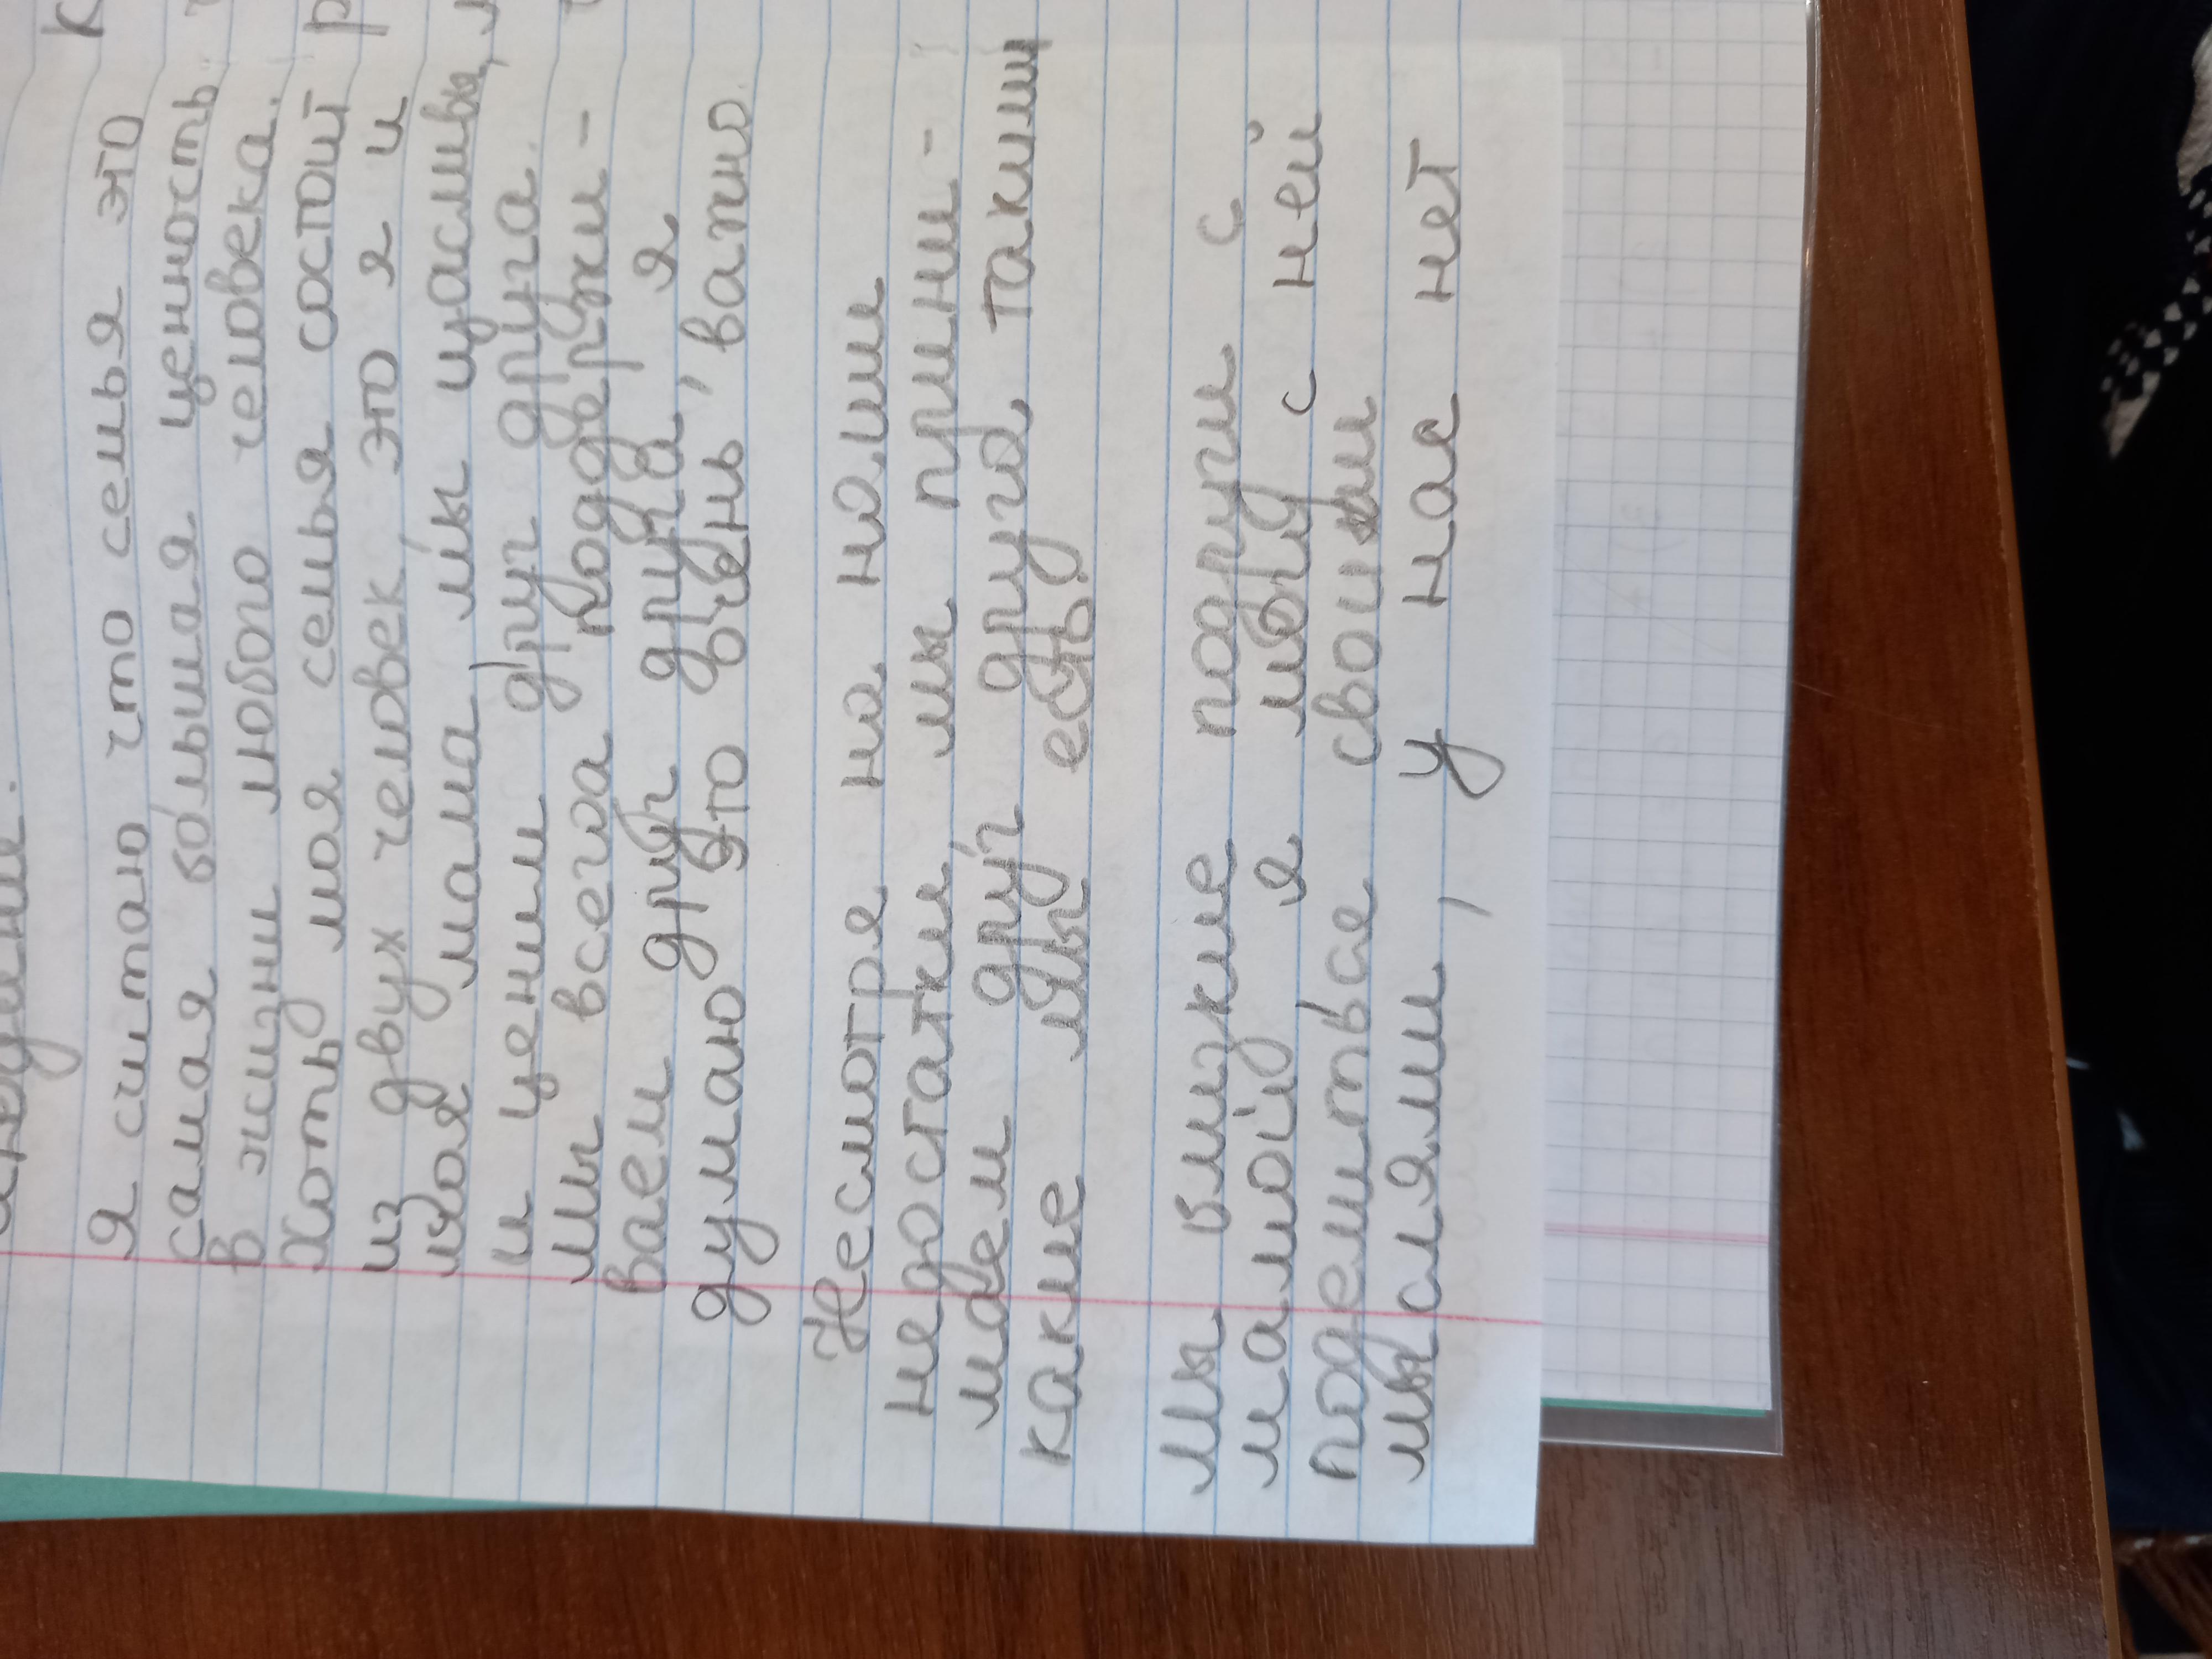 Я считаю что семья это
самая большая ценность
в жизни любого человека.
Хоть моя семья состоит
из двух человек это я и
моя мама мы щасливы,
и ценим друг друга.
Мы всегда поддержи-
ваем друг друга, я
думаю это очень, важно.
Несмотря на наши
недостатки, мы прини-
маем друг друга такими
какие мы есть.
Мы близкие подруги с
мамой, я могу с ней
поделиться своими
мыслями, у нас нет